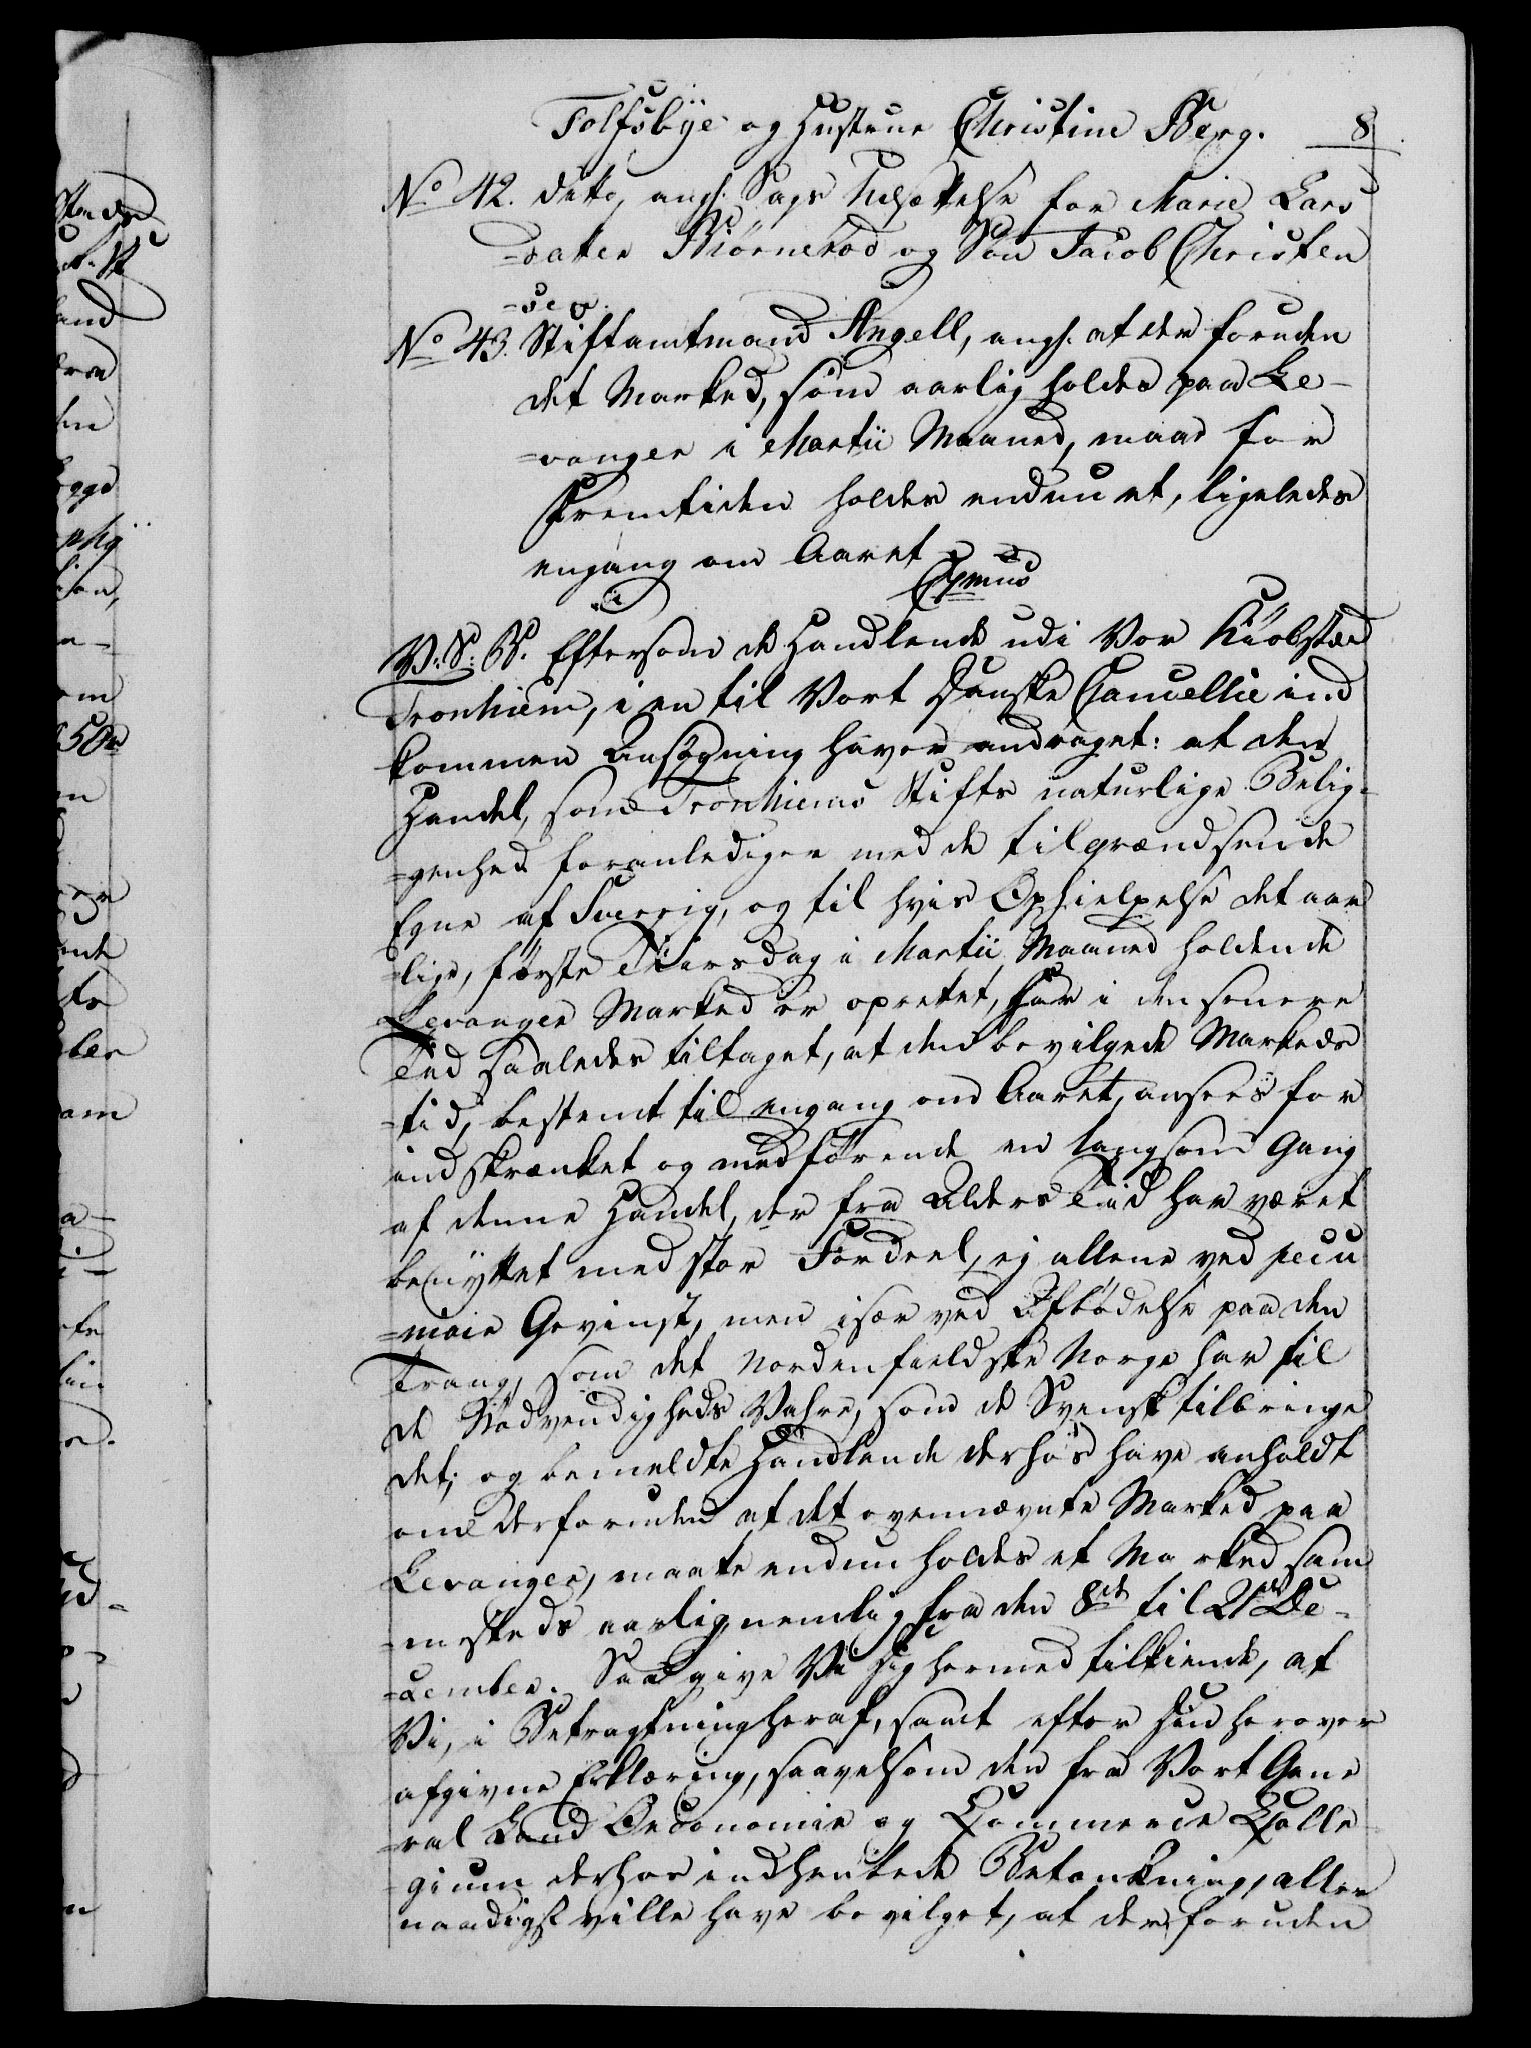 Tolfsbÿe og Hustrue Christine Berg. 8
No 42. dito, angl. Sags Udsettelse for Marie Lars
=datter Biørnerød og Søn Jacob Christen
=sen.
No 43. Stiftamtmand Angell, angl. at der foruden
det Marked, som aarlig holdes paa Le-
=vanger i Martii Maaned, maae for
Fremtiden holdes endnu et, ligeledes
engang om Aaret
V: S: B. Eftersom de Handlende udi Vor Kiøbstæd
Tronhiem, i en til Vort Danske Cancellie ind
kommen Ansøgning haver andraget: at den
Handel, som Tronhiems Stifts naturlige Belig-
=genhed foranlediger med de tilgrændsende
Egne af Sverrig, og til hvis Ophielpelse det aar
=lige, første Tiirsdag i Martii Maaned holdende
Levanger Marked er oprettet, har i den senere
Tid saaledes tiltaget, at den bevilgede Markeds
=tid, bestemt til engang om Aaret, ansees for
indskrænket og medførende en langsom Gang
af denne Handel, der fra Alders Tid har været
benÿttet med stor Fordeel, ej allene ved pecu
=niair Gevinst, men især ved Afbødelse paa den
Trang, som det Nordenfieldske Norge har til
de Nødvendigheds Vahre, som de Svenske tilbringe
det; og bemeldte Handlende derhos have anholdt
om derforuden at det ovennævnte Marked paa
Levanger, maatte endnu holdes et Marked sam
=mesteds aarlig, nemlig fra den 8de til 21de De-
=cember. Saa give Vi dig hermed tilkiende, at
Vi, i Betragtning heraf, samt efter din herover
afgivne Erklæring, saavelsom den fra Vort Gene
=ral Land Oeconomie og Commerce Colle
=gium derhos indhentede Betænkning, aller
naadigst ville have bevilget, at der, foruden